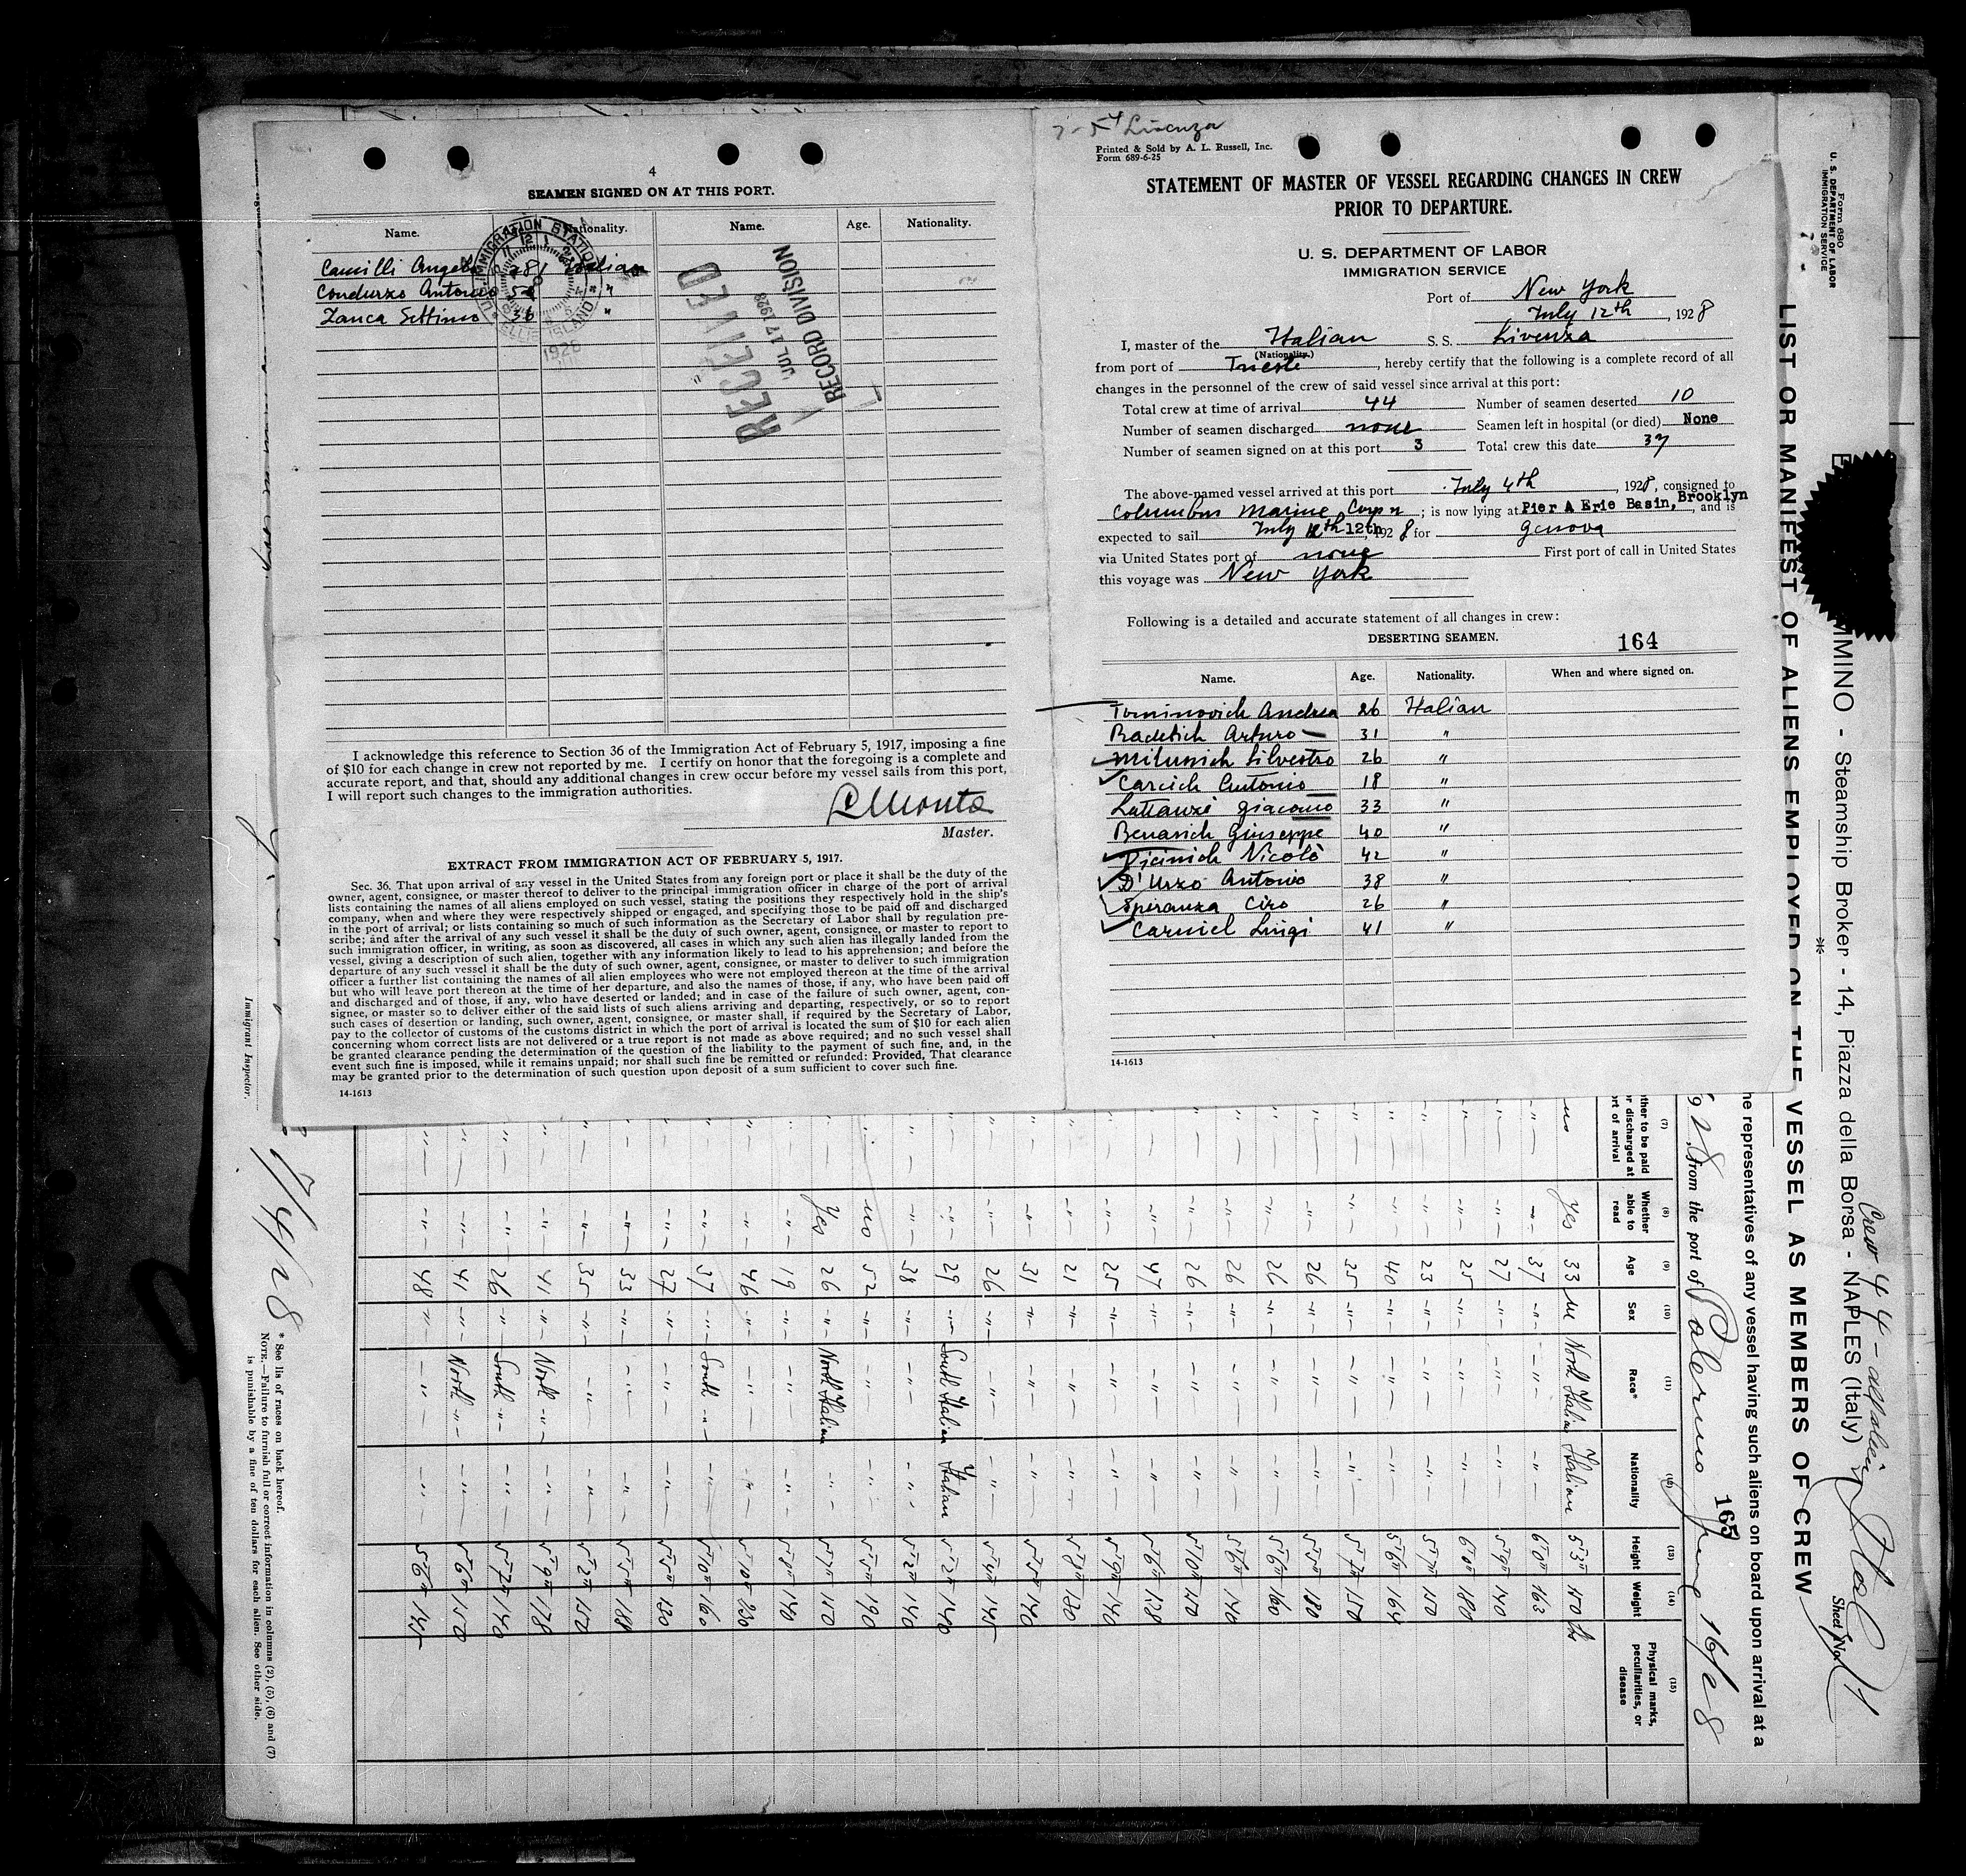 4
SEAMEN SIGNED ON AT THIS PORT.
Name. Nationality. Name. Age. Nationality.
Camilli Angelo 28 Italian
Condurzo Antonio 58 " "
Zanca Settimo 36 "
U.S. IMMIGRATION STATION
ELLIS ISLAND
1928
RECEIVED
JUL 17 1928
RECORD DIVISION
I acknowledge this reference to Section 36 of the Immigration Act of February 5, 1917, imposing a fine
of $10 for each change in crew not reported by me. I certify on honor that the foregoing is a complete and
accurate report, and that, should any additional changes in crew occur before my vessel sails from this port,
I will report such changes to the immigration authorities.
Master.
EXTRACT FROM IMMIGRATION ACT OF FEBRUARY 5, 1917.
Sec. 36. That upon arrival of any vessel in the United States from any foreign port or place it shall be the duty of the
owner, agent, consignee, or master thereof to deliver to the principal immigration officer in charge of the port of arrival
lists containing the names of all aliens employed on such vessel, stating the positions they respectively hold in the ship's
company, when and where they were respectively shipped or engaged, and specifying those to be paid off and discharged
in the port of arrival; or lists containing so much of such information as the Secretary of Labor shall by regulation pre-
scribe; and after the arrival of any such vessel it shall be the duty of such owner, agent, consignee, or master to report to
such immigration officer, in writing, as soon as discovered, all cases in which any such alien has illegally landed from the
vessel, giving a description of such alien, together with any information likely to lead to his apprehension; and before the
departure of any such vessel it shall be the duty of such owner, agent, consignee, or master to deliver to such immigration
officer a further list containing the names of all alien employees who were not employed thereon at the time of the arrival
but who will leave port thereon at the time of her departure, and also the names of those, if any, who have been paid off
and discharged and of those, if any, who have deserted or landed; and in case of the failure of such owner, agent, con-
signee, or master so to deliver either of the said lists of such aliens arriving and departing, respectively, or so to report
such cases of desertion or landing, such owner, agent, consignee, or master shall, if required by the Secretary of Labor,
pay to the collector of customs of the customs district in which the port of arrival is located the sum of $10 for each alien
concerning whom correct lists are not delivered or a true report is not made as above required; and no such vessel shall
be granted clearance pending the determination of the question of the liability to the payment of such fine, and, in the
event such fine is imposed, while it remains unpaid; nor shall such fine be remitted or refunded: Provided, That clearance
may be granted prior to the determination of such question upon deposit of a sum sufficient to cover such fine.
14-1613
Livenza
Printed & Sold by A. L. Russell, Inc.
Form 689-6-25
STATEMENT OF MASTER OF VESSEL REGARDING CHANGES IN CREW
PRIOR TO DEPARTURE.
U. S. DEPARTMENT OF LABOR
IMMIGRATION SERVICE
Port of New York
July 12th, 1928
I, master of the Italian S. S. Livenza
(Nationality.)
from port of Trieste, hereby certify that the following is a complete record of all
changes in the personnel of the crew of said vessel since arrival at this port:
Total crew at time of arrival 44 Number of seamen deserted 10
Number of seamen discharged none Seamen left in hospital (or died) None
Number of seamen signed on at this port 3 Total crew this date 37
The above-named vessel arrived at this port July 4th, 1928, consigned to
Columbus Marine Corpn; is now lying at Pier A Erie Basin, Brooklyn, and is
expected to sail July 12th, 1928 for Genova
via United States port of none First port of call in United States
this voyage was New York
Following is a detailed and accurate statement of all changes in crew:
DESERTING SEAMEN.
164
Name. Age. Nationality. When and where signed on.
Tominovich Andrea 26 Italian
Radetich Arturo 31 "
Milussich Silvestro 26 "
Carcich Antonio 18 "
Lattanzi Giacomo 33 "
Benasich Giuseppe 40 "
Picinich Nicolò 42 "
D'Urzo Antonio 38 "
Speranza Ciro 26 "
Carniel Luigi 41 "
14-1613
Form 680
U. S. DEPARTMENT OF LABOR
IMMIGRATION SERVICE
MMINO - Steamship Broker - 14, Piazza della Borsa - NAPLES (Italy)
Crew 44 - all alien
Sheet No. 1
LIST OR MANIFEST OF ALIENS EMPLOYED ON THE VESSEL AS MEMBERS OF CREW
he representatives of any vessel having such aliens on board upon arrival at a
1928, from the port of Palermo June 16/28
165
(7) (8) (9) (10) (11) (12) (13) (14) (15)
ther to be paid
r discharged at
rt of arrival
Whether
able to
read
Age
Sex
Race*
Nationality
Height
Weight
Physical marks,
peculiarities, or
disease
no Yes 33 M North Italian Italian 5'3" 150 lbs
" " 37 " " " 6'0" 163
" " 27 " " " 5'9" 140
" " 25 " " " 6'0" 180
" " 23 " " " 5'7" 150
" " 40 " " " 5'6" 164
" " 35 " " " 5'7" 150
" " 26 " " " 5'5" 180
" " 26 " " " 5'6" 160
" " 26 " " " 5'6" 140
" " 26 " " " 5'10"
" " 47 " " " 5'6" 128
" " 25 " " " 5'9" 140
" " 21 " " " 5'8" 130
" " 31 " " " 5'5" 140
" " 26 " " " 5'4" 145
" " 29 " South Italian Italian 5'2" 140
" " 38 " " " 5'2" 140
" no 52 " " " 5'5" 190
Yes 26 " North Italian " 5'7" 150
" 19 " " " 5'8" 140
" 46 " " " 5'10" 230
" " 37 " South " " 5'10" 160
" " 27 " " " 5'5" 130
" " 33 " " " 5'5" 188
" " 35 " " " 5'2" 150
" " 41 " North " " 5'9" 178
" " 26 " South " " 5'7" 140
" " 41 " North " " 5'6" 150
" " 48 " " " 5'6" 145
Immigrant Inspector.
7/4/28
* See lis of races on back hereof.
NOTE.—Failure to furnish full or correct information in columns (2), (5), (6) and (7)
is punishable by a fine of ten dollars for each alien. See other side.